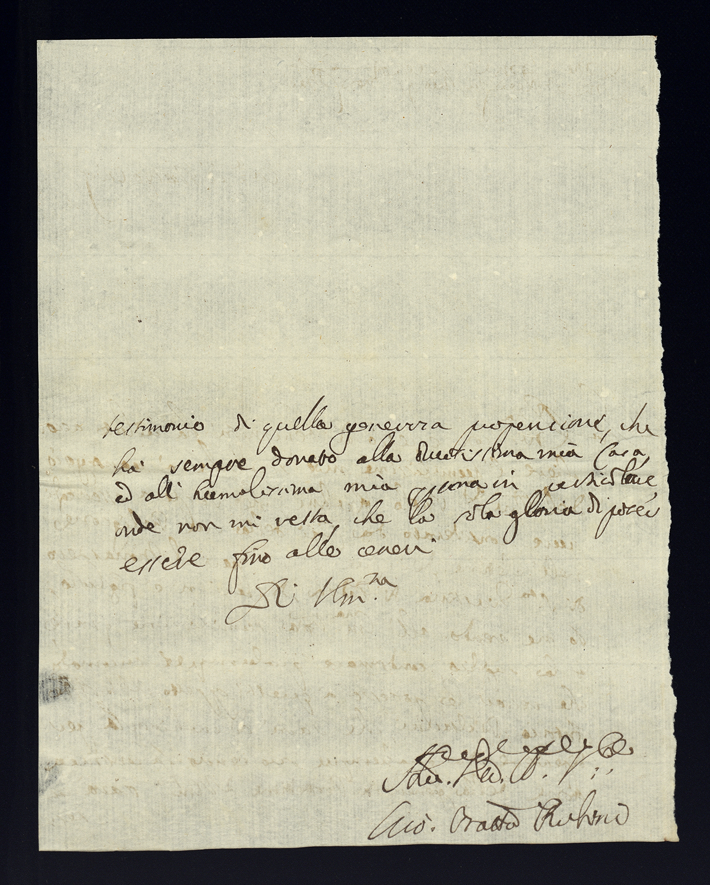 testimonio di quella generosa propensione, che
ha sempre donato alla divotissima mia Casa,
ed all' humilissima mia persona in particolare
onde non mi resta, che la sola gloria di poter
essere fino alle ceneri
Di V.
Gio. Batta Rubini